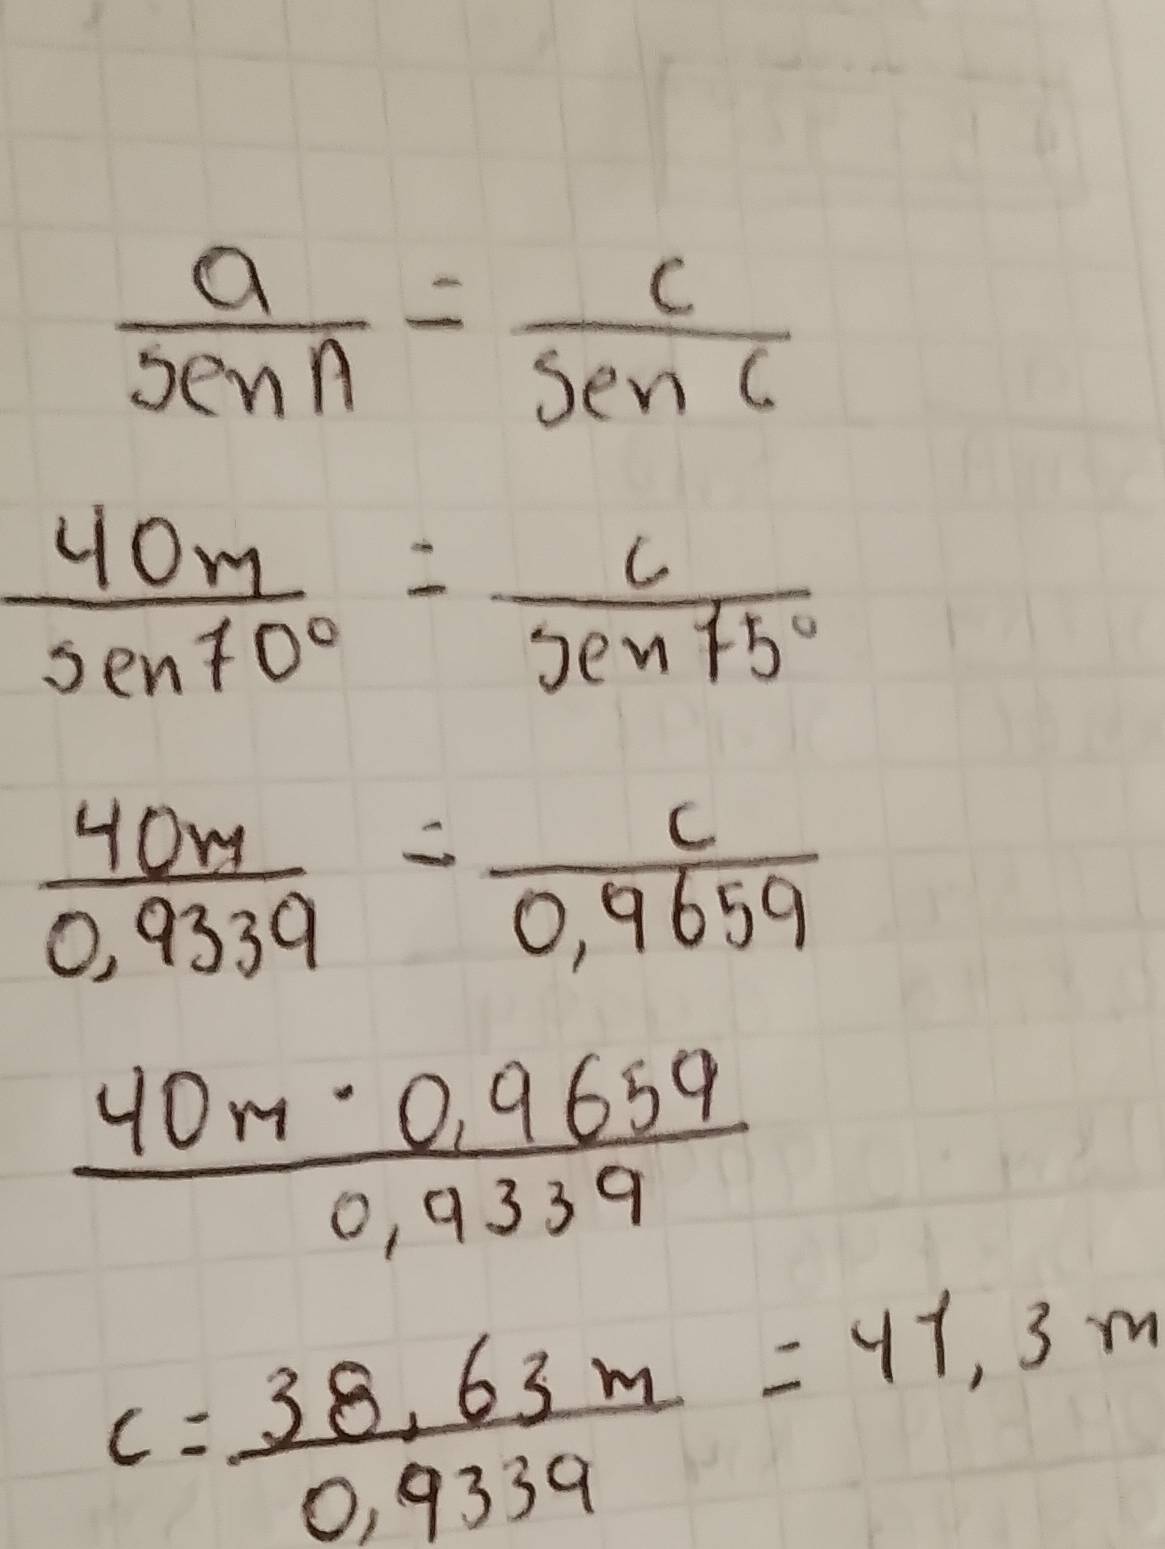 a/sen A = c/sen C
40m/sen70° = c/sen75°
40m/0,9339 = c/0,9659
40m · 0,9659/0,9339
c = 38,63m/0,9339 = 41,3m